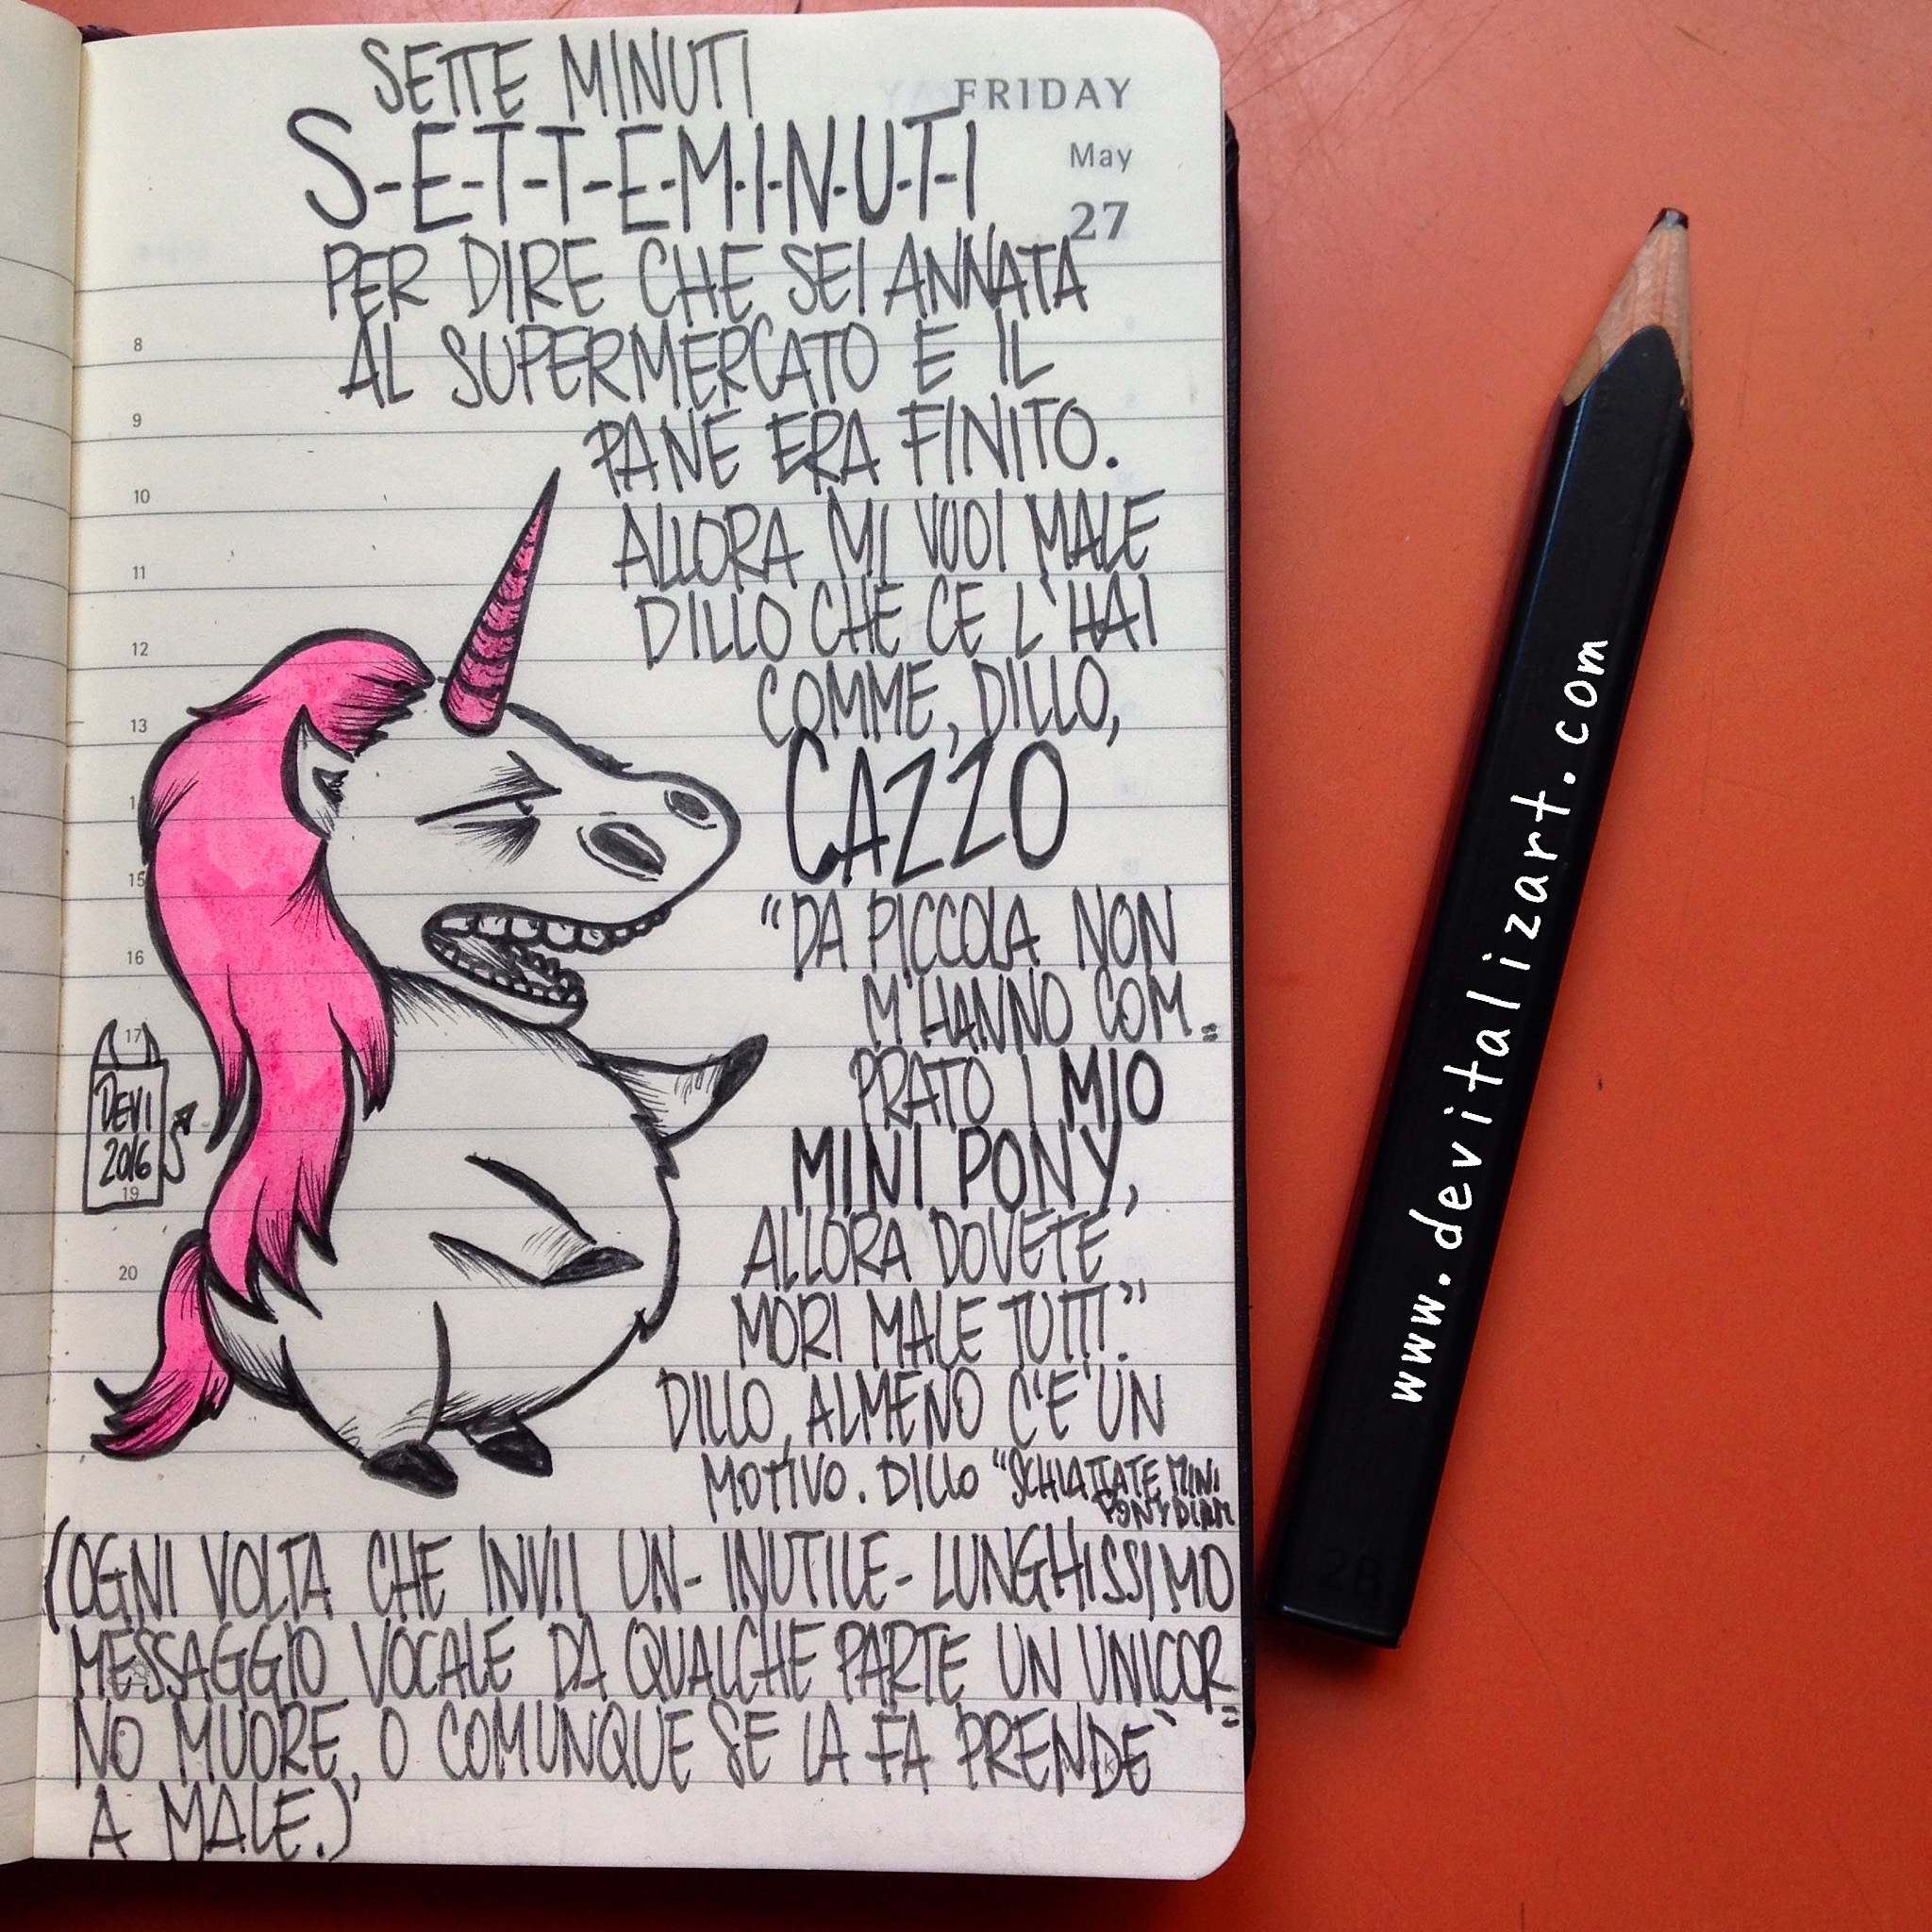 SETTE MINUTI
S-E-T-T-E-M-I-N-U-T-I
FRIDAY
May
27
PER DIRE CHE SEI ANNATA
AL SUPERMERCATO E IL
PANE ERA FINITO.
ALLORA MI VUOI MALE
DILLO CHE CE L'HAI
COMME, DILLO,
CAZZO
"DA PICCOLA NON
M'HANNO COM=
PRATO I MIO
MINI PONY,
ALLORA DOVETE
MORI MALE TUTTI."
DILLO, ALMENO C'E' UN
MOTIVO. DILLO "SCHIATTATE MINI
PONY
(OGNI VOLTA CHE INVII UN-INUTILE-LUNGHISSIMO
MESSAGGIO VOCALE DA QUALCHE PARTE UN UNICOR=
NO MUORE, O COMUNQUE SE LA FA PRENDE`
A MALE.)
8
9
10
11
12
13
15
16
17
19
20
DEVI
2016
www.devitalizart.com
2B